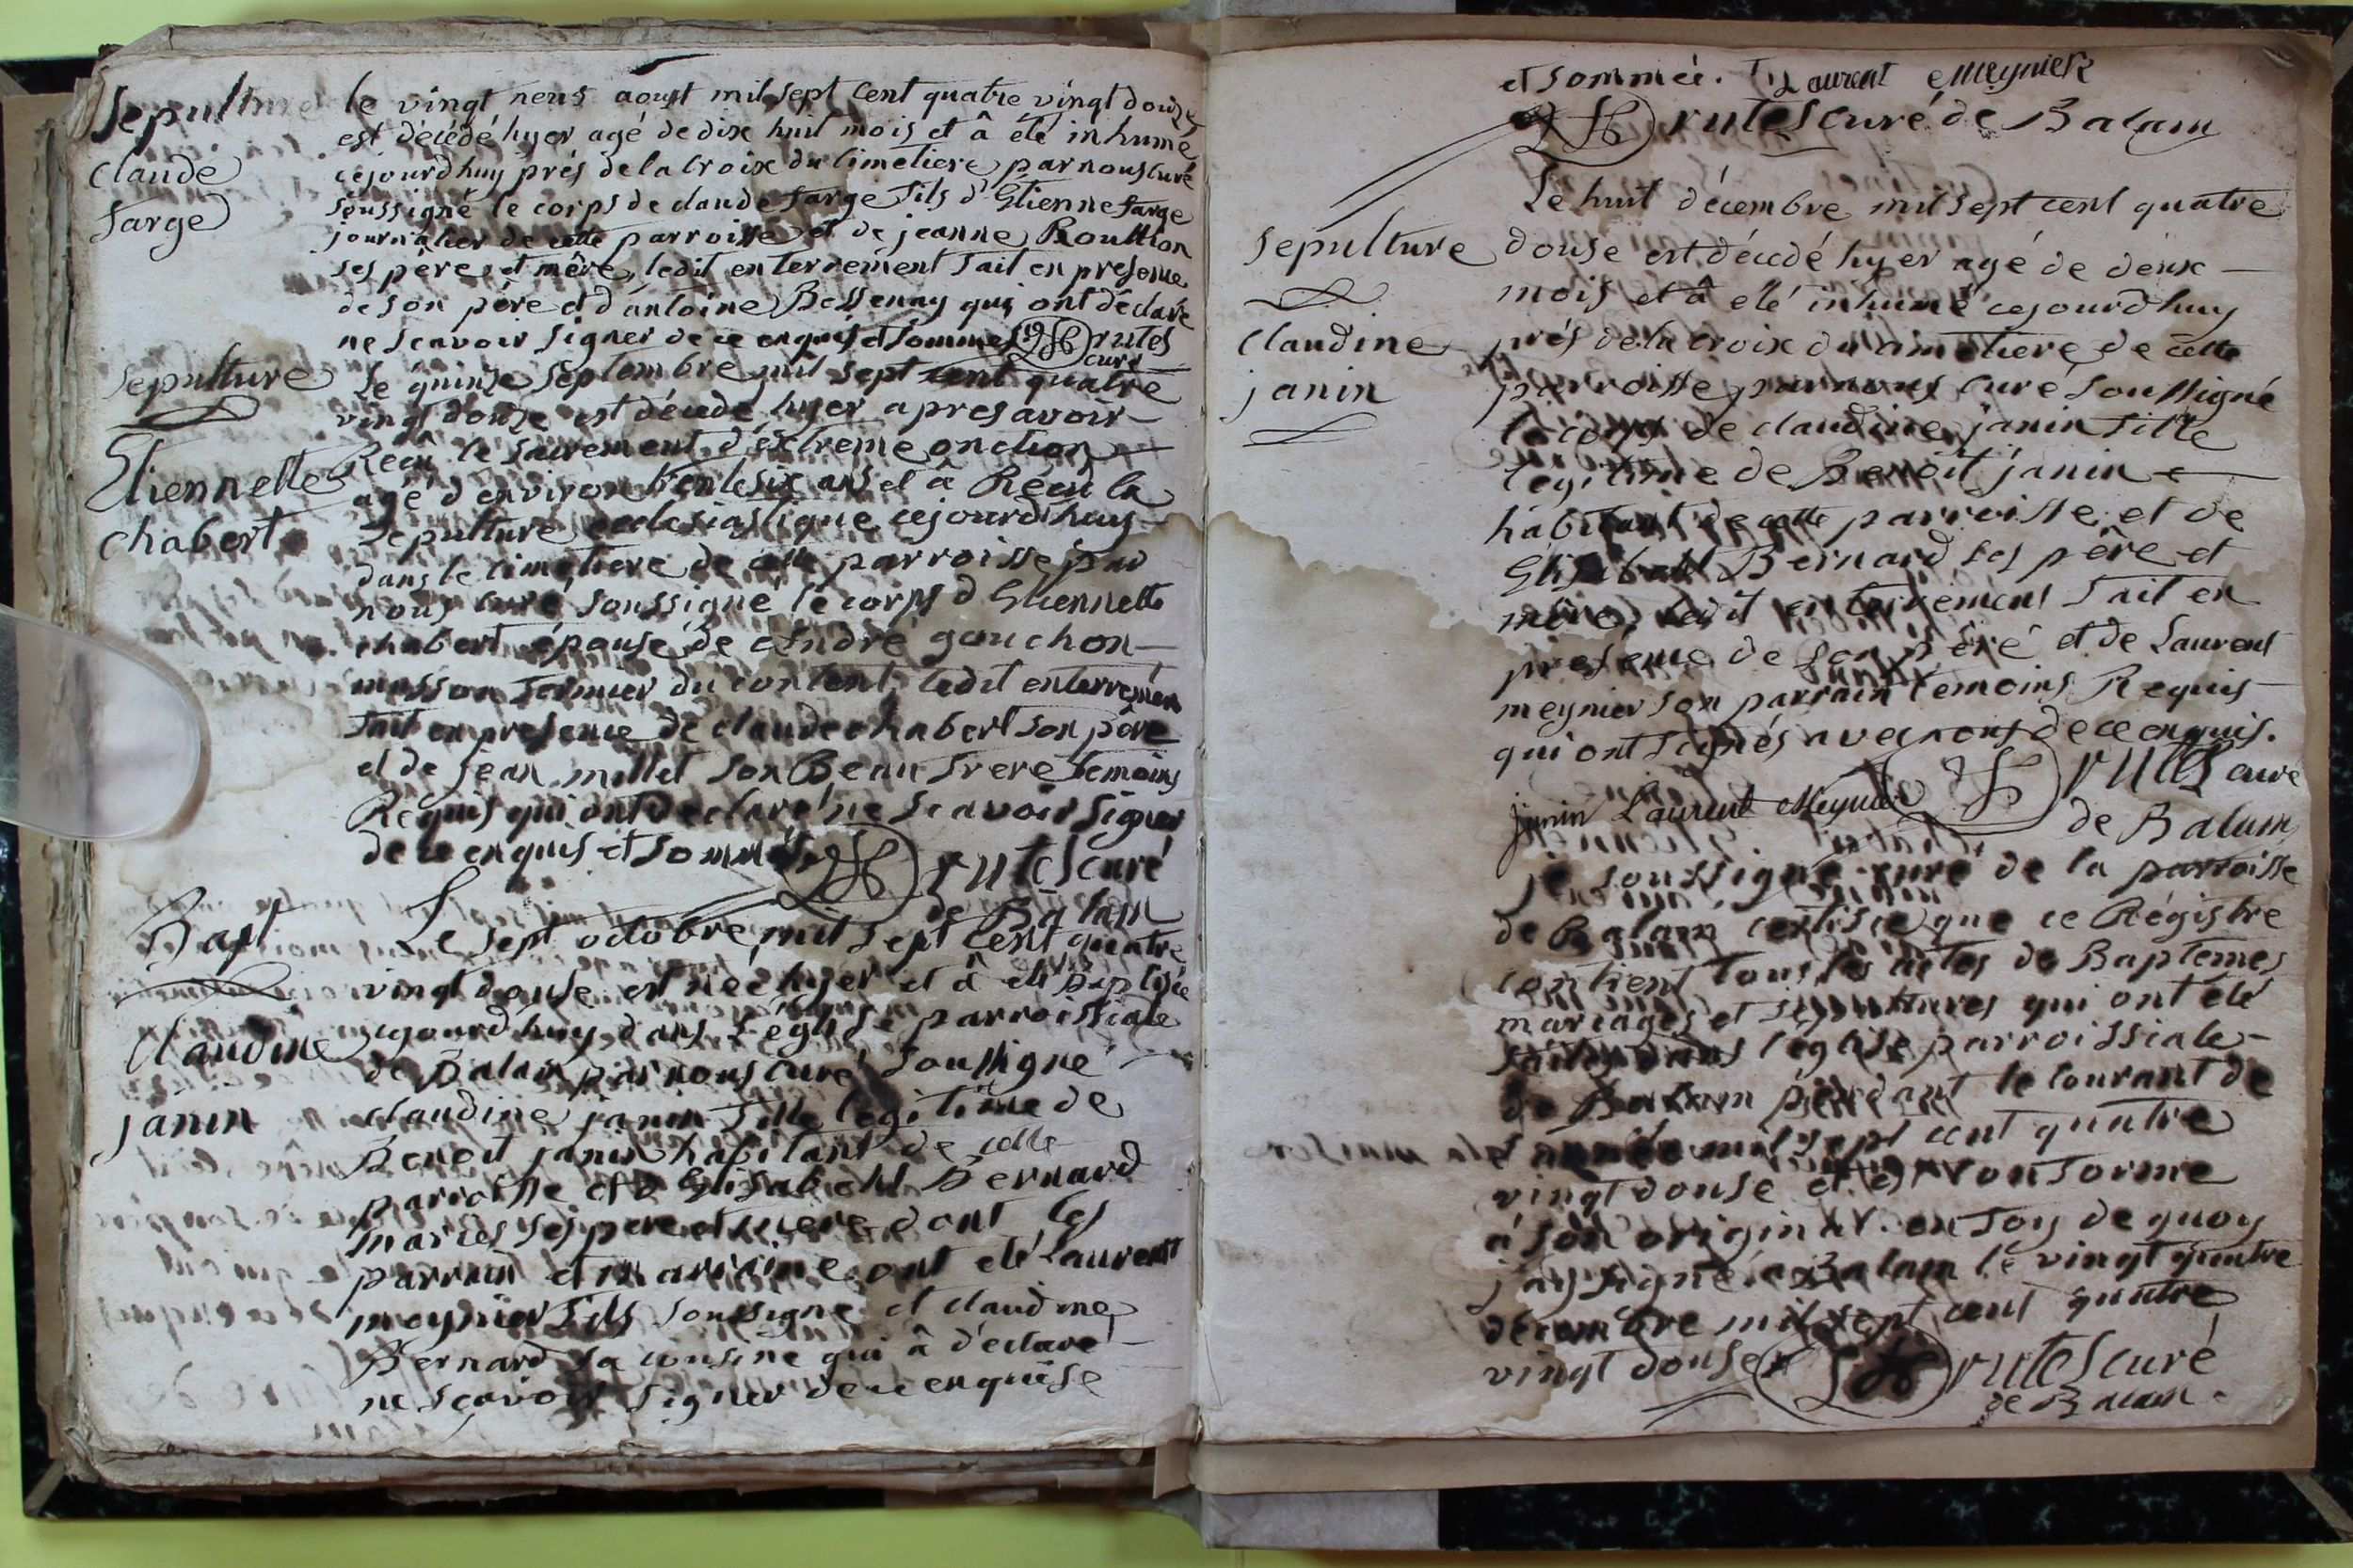 Sepulture
Claude
farge
le vingt neuf aoust mil sept cent quatre vingt douze
est décédé hyer agé de dix huit mois et â été inhumé
cejourdhuy prés de la croix du cimetiere par nous curé
soussigné le corps de claude farge fils d'Etienne farge
journalier de cette parroisse et de jeanne
ses pêre et mêre, ledit enterrement fait en presence
de son pére et d'antoine Bessenay qui ont déclaré
ne scavoir signer de ce enquis et sommés rutes
curé
Sepulture
Etiennette
chabert
Le quinze septembre mil sept cent quatre
vingt douze est décédé hyer apres avoir
Reçu le sacrement d'éxtreme onction
agé d'environ trente six ans et â Reçu la
sepulture ecclesiastique cejourdhuy
dans le cimetiere de cette parroisse par
nous curé soussigné le corps d'Etiennette
chabert épouse de André gouchon
fermier du content, ledit enterrement
fait en presence de claude chabert son pére
et de jean millet son Beau frere temoins
Requis qui ont declaré ne scavoir signer
de ce enquis et sommés rutes curé
de Balam
Bapt
Claudine
janin
Le sept octobre mil sept cent quatre
vingt douse est née hyer et â été Baptisée
cejourdhuy dans l'eglise parroissiale
de Balam par nous curé soussigné
claudine janin fille légitime de
Benoit janin habitant de cette
parroisse et d'Elisabeth Bernard
mariés ses pere et mere dont les
parrain et marraine ont été Laurent
meynier fils soussigné et claudine
Bernard sa cousine qui â déclaré
ne scavoir signer de ce enquise
et sommée. Laurent Meynier
rutes curé de Balam
Sepulture
claudine
janin
Le huit décembre mil sept cent quatre
douse est décédé hyer agé de deux
mois et â été inhumé cejourdhuy
prés de la croix du cimetiere de cette
parroisse par nous curé soussigné
le corps de claudine janin fille
légitime de Benoit janin
habitant de cette parroisse et de
Elisabeth Bernard ses pêre et
mêre, ledit enterrement fait en
presence de son pére et de Laurent
meynier son parrain temoins Requis
qui ont signés avec nous de ce enquis.
janin Laurent Meynier rutes curé
de Balam
je soussigné curé de la parroisse
de Balam certifie que ce Régistre
contient tous les actes de Baptemes
mariages et sepultures qui ont été
faites dans l'eglise parroissiale
de Balam pendant le courant de
l'année mil sept cent quatre
vingt douse et est conforme
à son original. en foy de quoy
j'ay signé à Balam le vingt quatre
décembre mil sept cent quatre
vingt douse rutes curé
de Balam